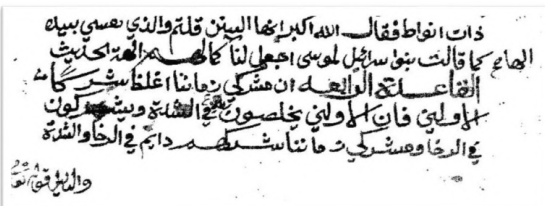 ذات انواط فقال الله اكبر انها السنن قلتم والذي نفسي بيده
كما قالت بنو اسرائيل لموسى اجعل لنا الها كما لهم الهة الحديث
القاعدة الرابعه ان مشركي زماننا اغلظ شركا من
الاولين فان الاولين يخلصون في الشدة ويشركون
في الرخا ومشركي زماننا شركهم دايم في الرخا والشدة
والدليل قوله تعا